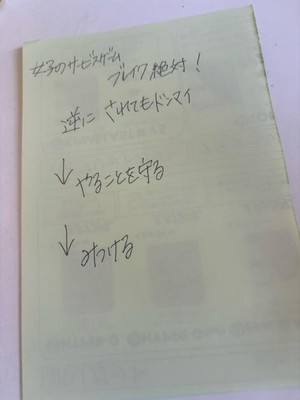 女子のサービスゲーム
ブレイク絶対!
逆に されてもドンマイ
↓ やることを守る
↓ みつける